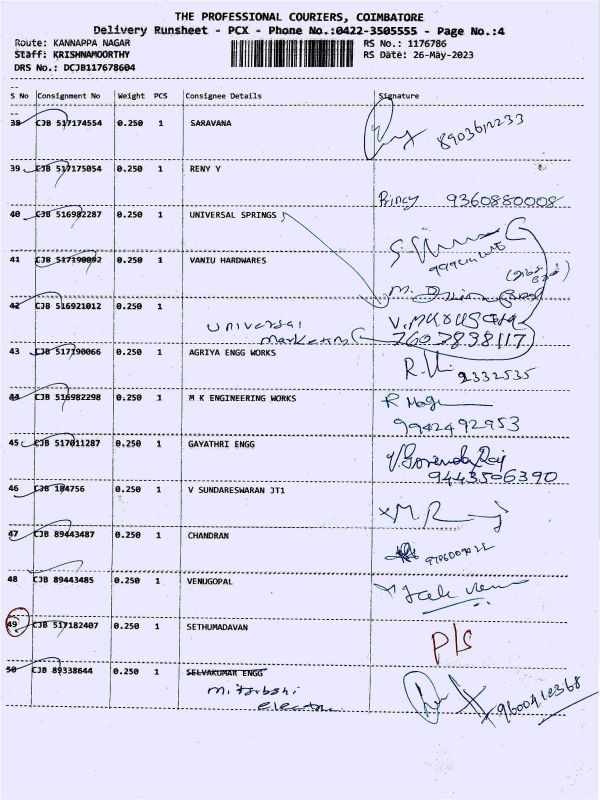 THE PROFESSIONAL COURIERS, COIMBATORE
Delivery Runsheet - PCX - Phone No.:0422-3505555 - Page No.:4
Route: KANNAPPA NAGAR RS No.: 1176786
Staff: KRISHNAMOORTHY RS Date: 26-May-2023
DRS No.: DCJB117678604
S No Consignment No Weight PCS Consignee Details Signature
38 CJB 517174554 0.250 1 SARAVANA
8903612233
39 CJB 517175054 0.250 1 RENY Y
Princy 9360880008
40 CJB 516982287 0.250 1 UNIVERSAL SPRINGS
41 CJB 517190092 0.250 1 VANIU HARDWARES
42 CJB 516921012 0.250 1
Universal
marketing
7603898117
43 CJB 517190066 0.250 1 AGRIYA ENGG WORKS
9332535
44 CJB 516982298 0.250 1 M K ENGINEERING WORKS
9942492953
45 CJB 517011287 0.250 1 GAYATHRI ENGG
V. Govenda Raj
9443506390
46 CJB 184756 0.250 1 V SUNDARESWARAN JT1
47 CJB 89443487 0.250 1 CHANDRAN
48 CJB 89443485 0.250 1 VENUGOPAL
49 CJB 517182407 0.250 1 SETHUMADAVAN
P/S
50 CJB 89338644 0.250 1 SELVAKUMAR ENGG